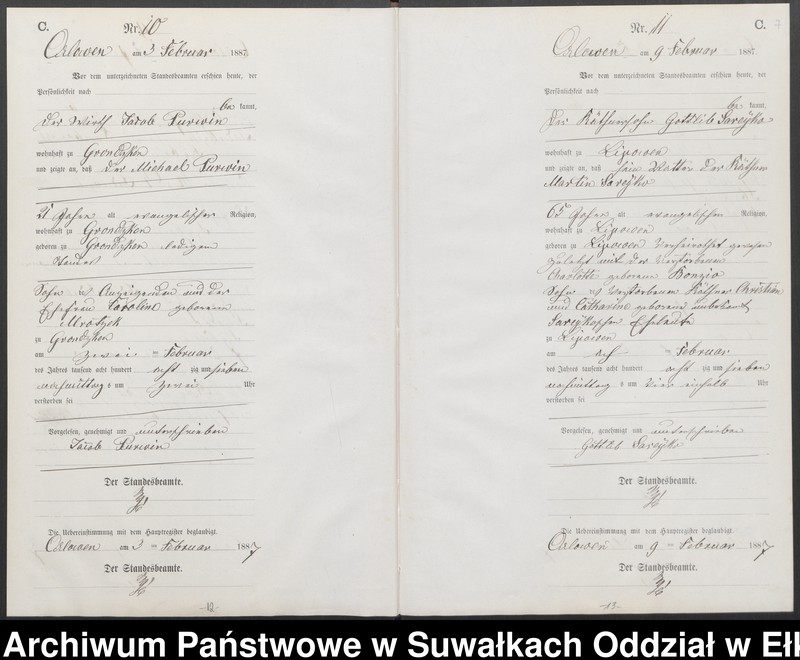 C.
Nr. 10
Orlowen am 3 Februar 1887
Vor dem unterzeichneten Standesbeamten erschien heute, der
Persönlichkeit nach
be kannt,
der Wirth Jacob Purwin
wohnhaft zu Grondzken
und zeigte an, daß der Michael Purwin
21 Jahre alt evangelischer Religion,
wohnhaft zu Grondzken
geboren zu Grondzken ledigen
Standes
Sohn des Anzeigenden und der
Ehefrau Caroline geborenen
Mrotzek
zu Grondzken
am zwei Februar
des Jahres tausend acht hundert acht zig und sieben
nachmittag s um zwei Uhr
verstorben sei
Vorgelesen, genehmigt und unterschrieben
Jacob Purwin
Der Standesbeamte.
Die Uebereinstimmung mit dem Hauptregister beglaubigt.
Orlowen am 3 Februar 1887
Der Standesbeamte.
-12-
C.
Nr. 11
Orlowen am 9 Februar 1887
Vor dem unterzeichneten Standesbeamten erschien heute, der
Persönlichkeit nach
be kannt,
der Käthnersohn Gottlieb Sareyko
wohnhaft zu Lipowen
und zeigte an, daß sein Vater der Käthner
Martin Sareyko
65 Jahre alt evangelischen Religion,
wohnhaft zu Lipowen
geboren zu Lipowen verheirathet gewesen
zuletzt mit der verstorbenen
Charlotte geborenen Bonzio
Sohn des verstorbenen Käthner Christian
und Catharine geborenen unbekannt
Sareykoschen Eheleute
zu Lipowen
am acht Februar
des Jahres tausend acht hundert acht zig und sieben
nachmittag s um vier einhalb Uhr
verstorben sei
Vorgelesen, genehmigt und unterschrieben
Gottlieb Sareyko
Der Standesbeamte.
Die Uebereinstimmung mit dem Hauptregister beglaubigt.
Orlowen am 9 Februar 1887
Der Standesbeamte.
-13-
Archiwum Państwowe w Suwałkach Oddział w Ełk